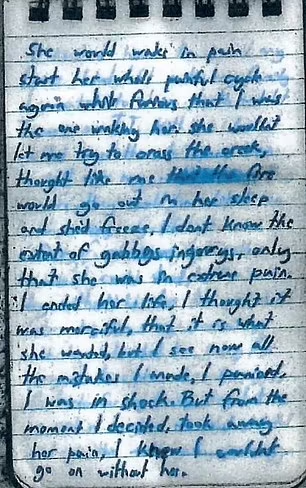 She would wake in pain
start her whole painful cycle
again furious that I was
the one waking her. she wouldnt
let me try to cross the creek,
thought like me that the fire
would go out in her sleep
and she'd freeze, I dont know the
extent of gabbys ingerys, only
that she was in extreme pain.
I ended her life, I thought it
was merciful, that it is what
she wanted, but I see now all
the mistakes I made, I panicked,
I was in shock. But from the
moment I decided, took away
her pain, I knew I wouldnt
go on without her.